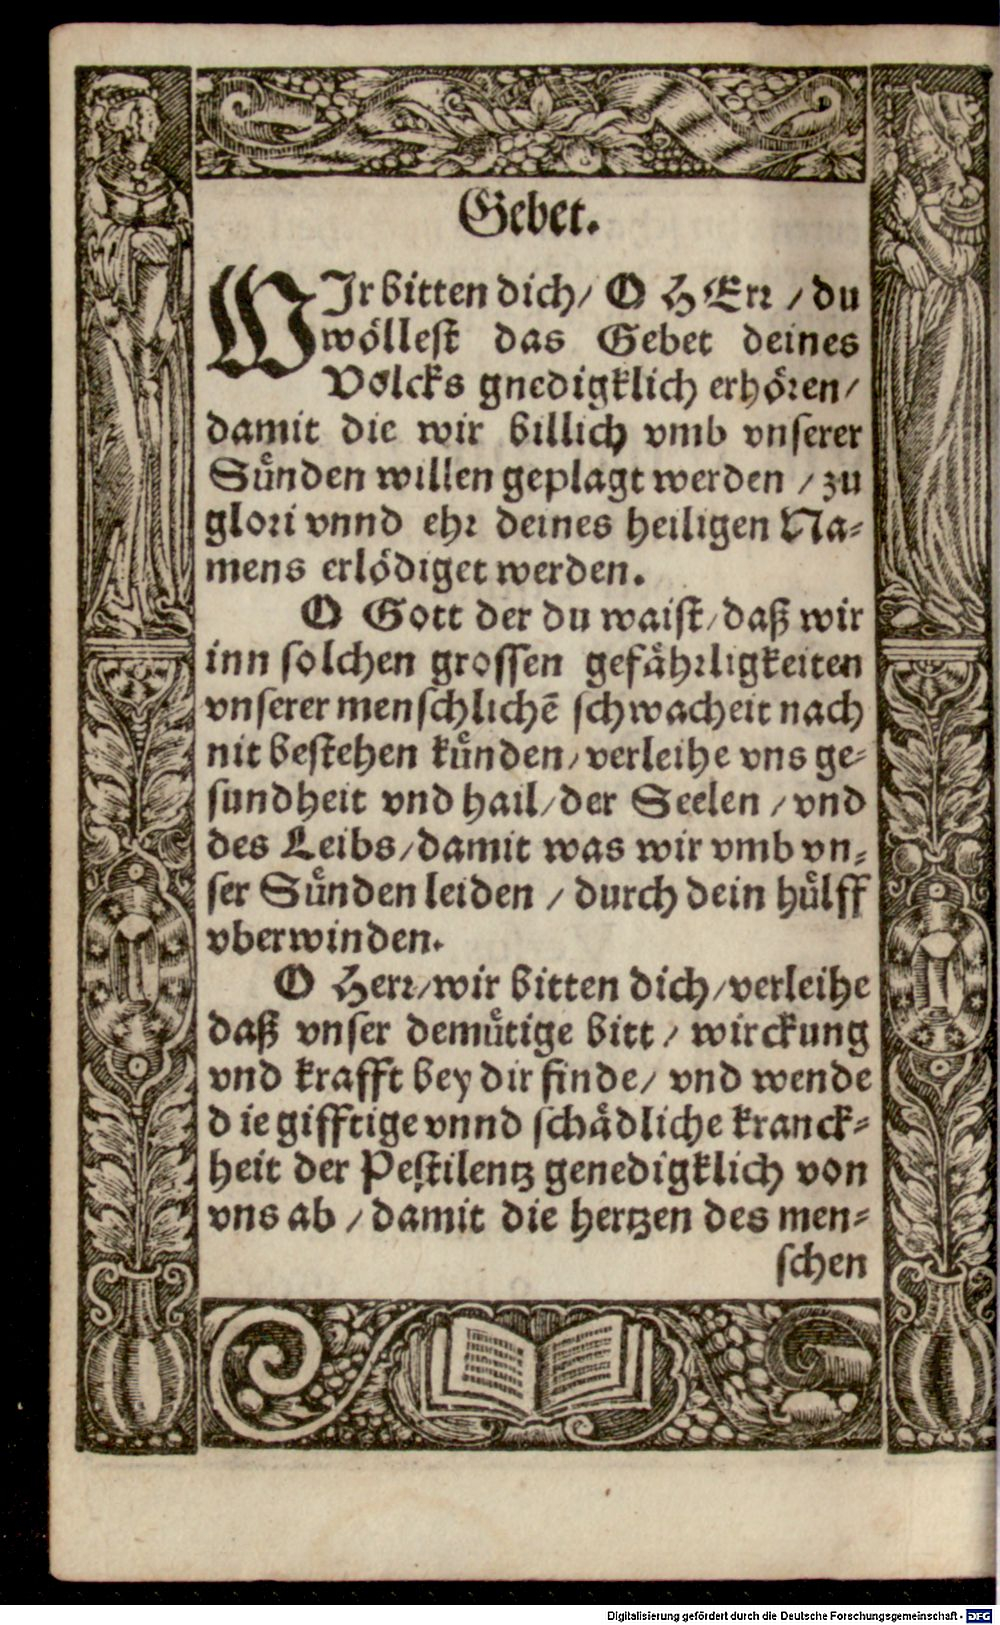 Gebet.
WJr bitten dich/ O HErr / du
wöllest das Gebet deines
Volcks gnedigklich erhören/
damit die wir billich vmb vnserer
Sünden willen geplagt werden / zu
glori vnnd ehr deines heiligen Na⸗
mens erlödiget werden.
O Gott der du waist/ daß wir
inn solchen grossen gefährligkeiten
vnserer menschlichē schwacheit nach
nit bestehen künden/ verleihe vns ge⸗
sundheit vnd hail/ der Seelen / vnd
des Leibs/ damit was wir vmb vn⸗
ser Sünden leiden / durch dein hülff
vberwinden.
O Herr/ wir bitten dich/ verleihe
daß vnser demütige bitt / wirckung
vnd krafft bey dir finde/ vnd wende
die gifftige vnnd schädliche kranck⸗
heit der Pestilentz genedigklich von
vns ab / damit die hertzen des men⸗
schen
Digitalisierung gefördert durch die Deutsche Forschungsgemeinschaft - DFG